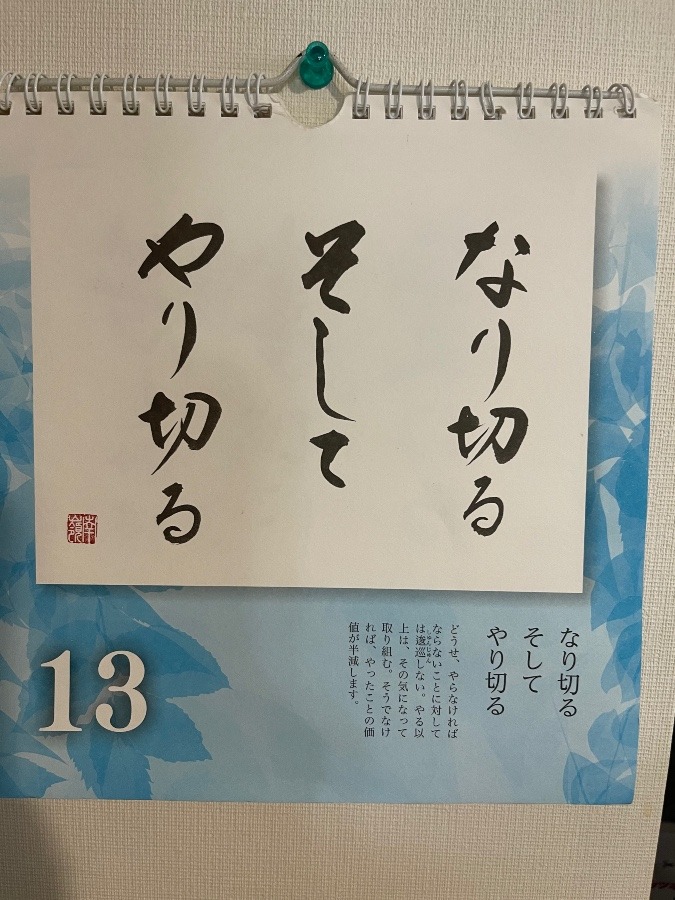 なり切る
そして
やり切る
なり切る
そして
やり切る
どうせ、やらなければ
ならないことに対して
は逡巡しない。やる以
しゅんじゅん
上は、その気になって
取り組む。そうでなけ
れば、やったことの価
値が半減します。
13